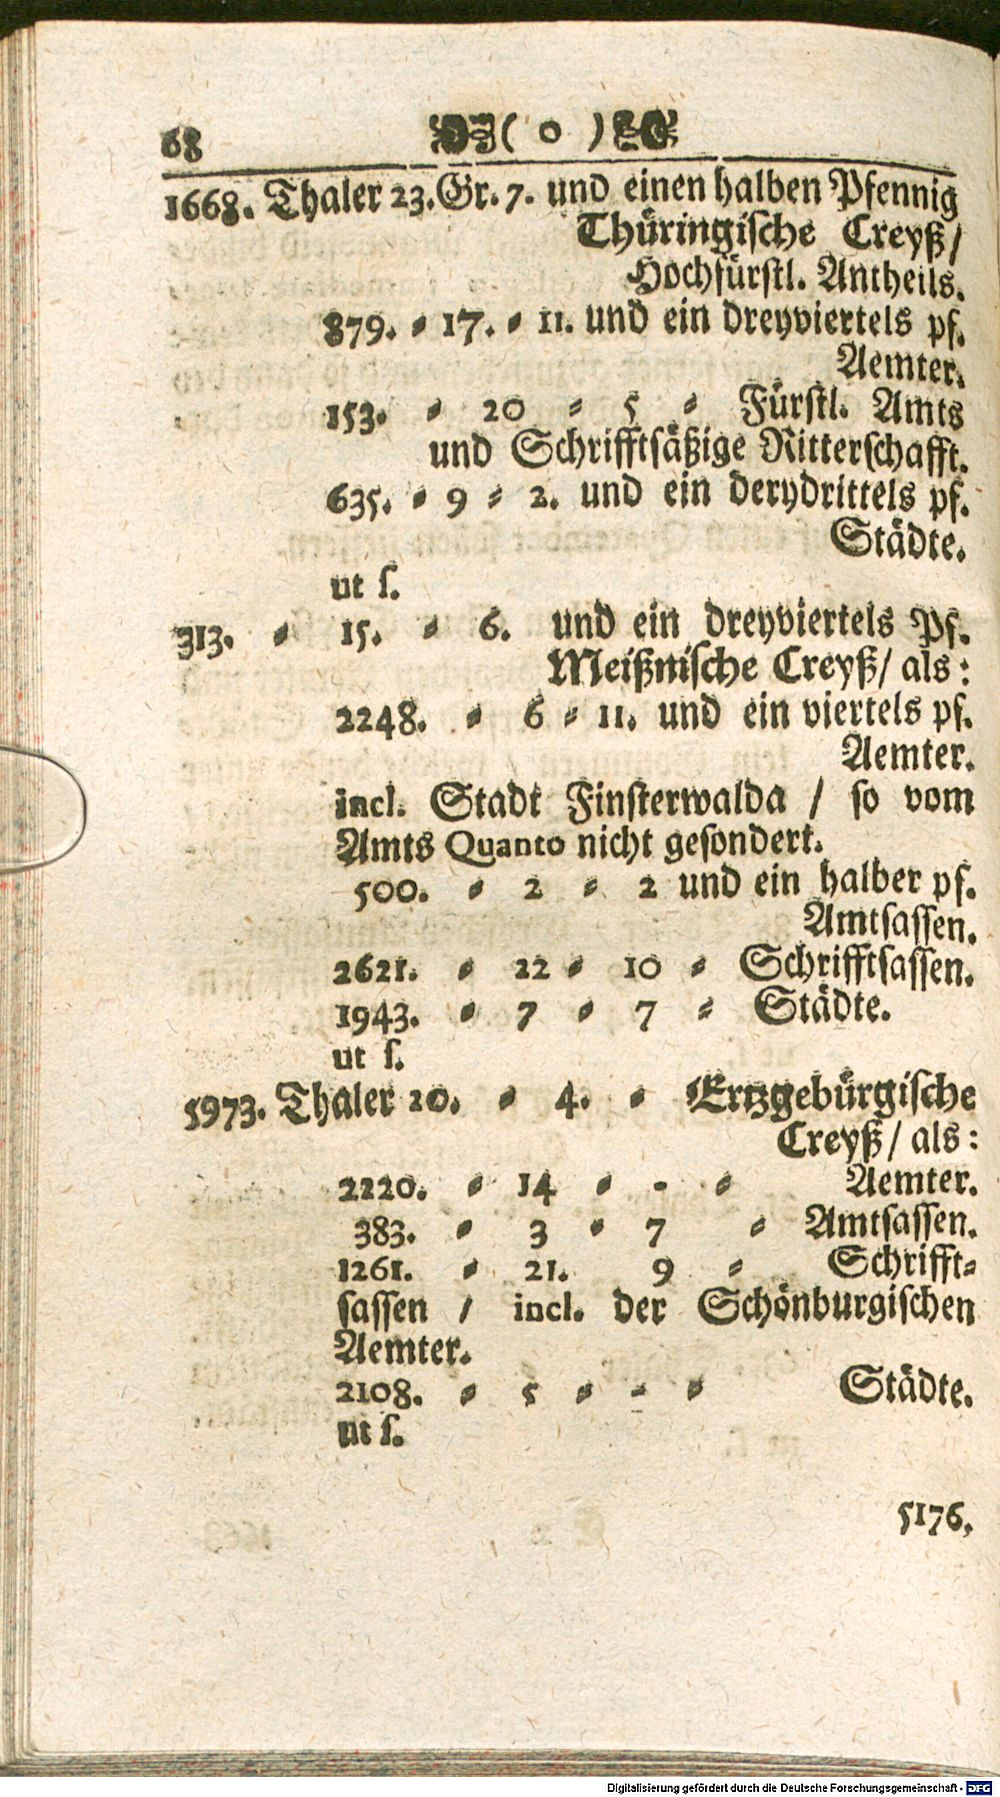 68 ( o )
1668. Thaler 23. Gr. 7. und einen halben Pfennig
Thüringische Creyß/
Hochfürstl. Antheils.
879. ⸗ 17. ⸗ 11. und ein dreyviertels pf.
Aemter.
153. ⸗ 20 ⸗ 5 ⸗ Fürstl. Amts
und Schrifftsäßige Ritterschafft.
635. ⸗ 9 ⸗ 2. und ein derydrittels pf.
Städte.
ut s.
313. ⸗ 15. ⸗ 6. und ein dreyviertels Pf.
Meißnische Creyß/ als:
2248. ⸗ 6 ⸗ 11. und ein viertels pf.
Aemter.
incl. Stadt Finsterwalda / so vom
Amts Quanto nicht gesondert.
500. ⸗ 2 ⸗ 2 und ein halber pf.
Amtsassen.
2621. ⸗ 22 ⸗ 10 ⸗ Schrifftsassen.
1943. ⸗ 7 ⸗ 7 ⸗ Städte.
ut s.
5973. Thaler 20. ⸗ 4. ⸗ Ertzgebürgische
Creyß/ als:
2220. ⸗ 14 ⸗ - ⸗ Aemter.
383. ⸗ 3 ⸗ 7 ⸗ Amtsassen.
1261. ⸗ 21. 9 ⸗ Schrifft⸗
sassen / incl. der Schönburgischen
Aemter.
2108. ⸗ 5 ⸗ - ⸗ Städte.
ut s.
5176.
Digitalisierung gefördert durch die Deutsche Forschungsgemeinschaft - DFG